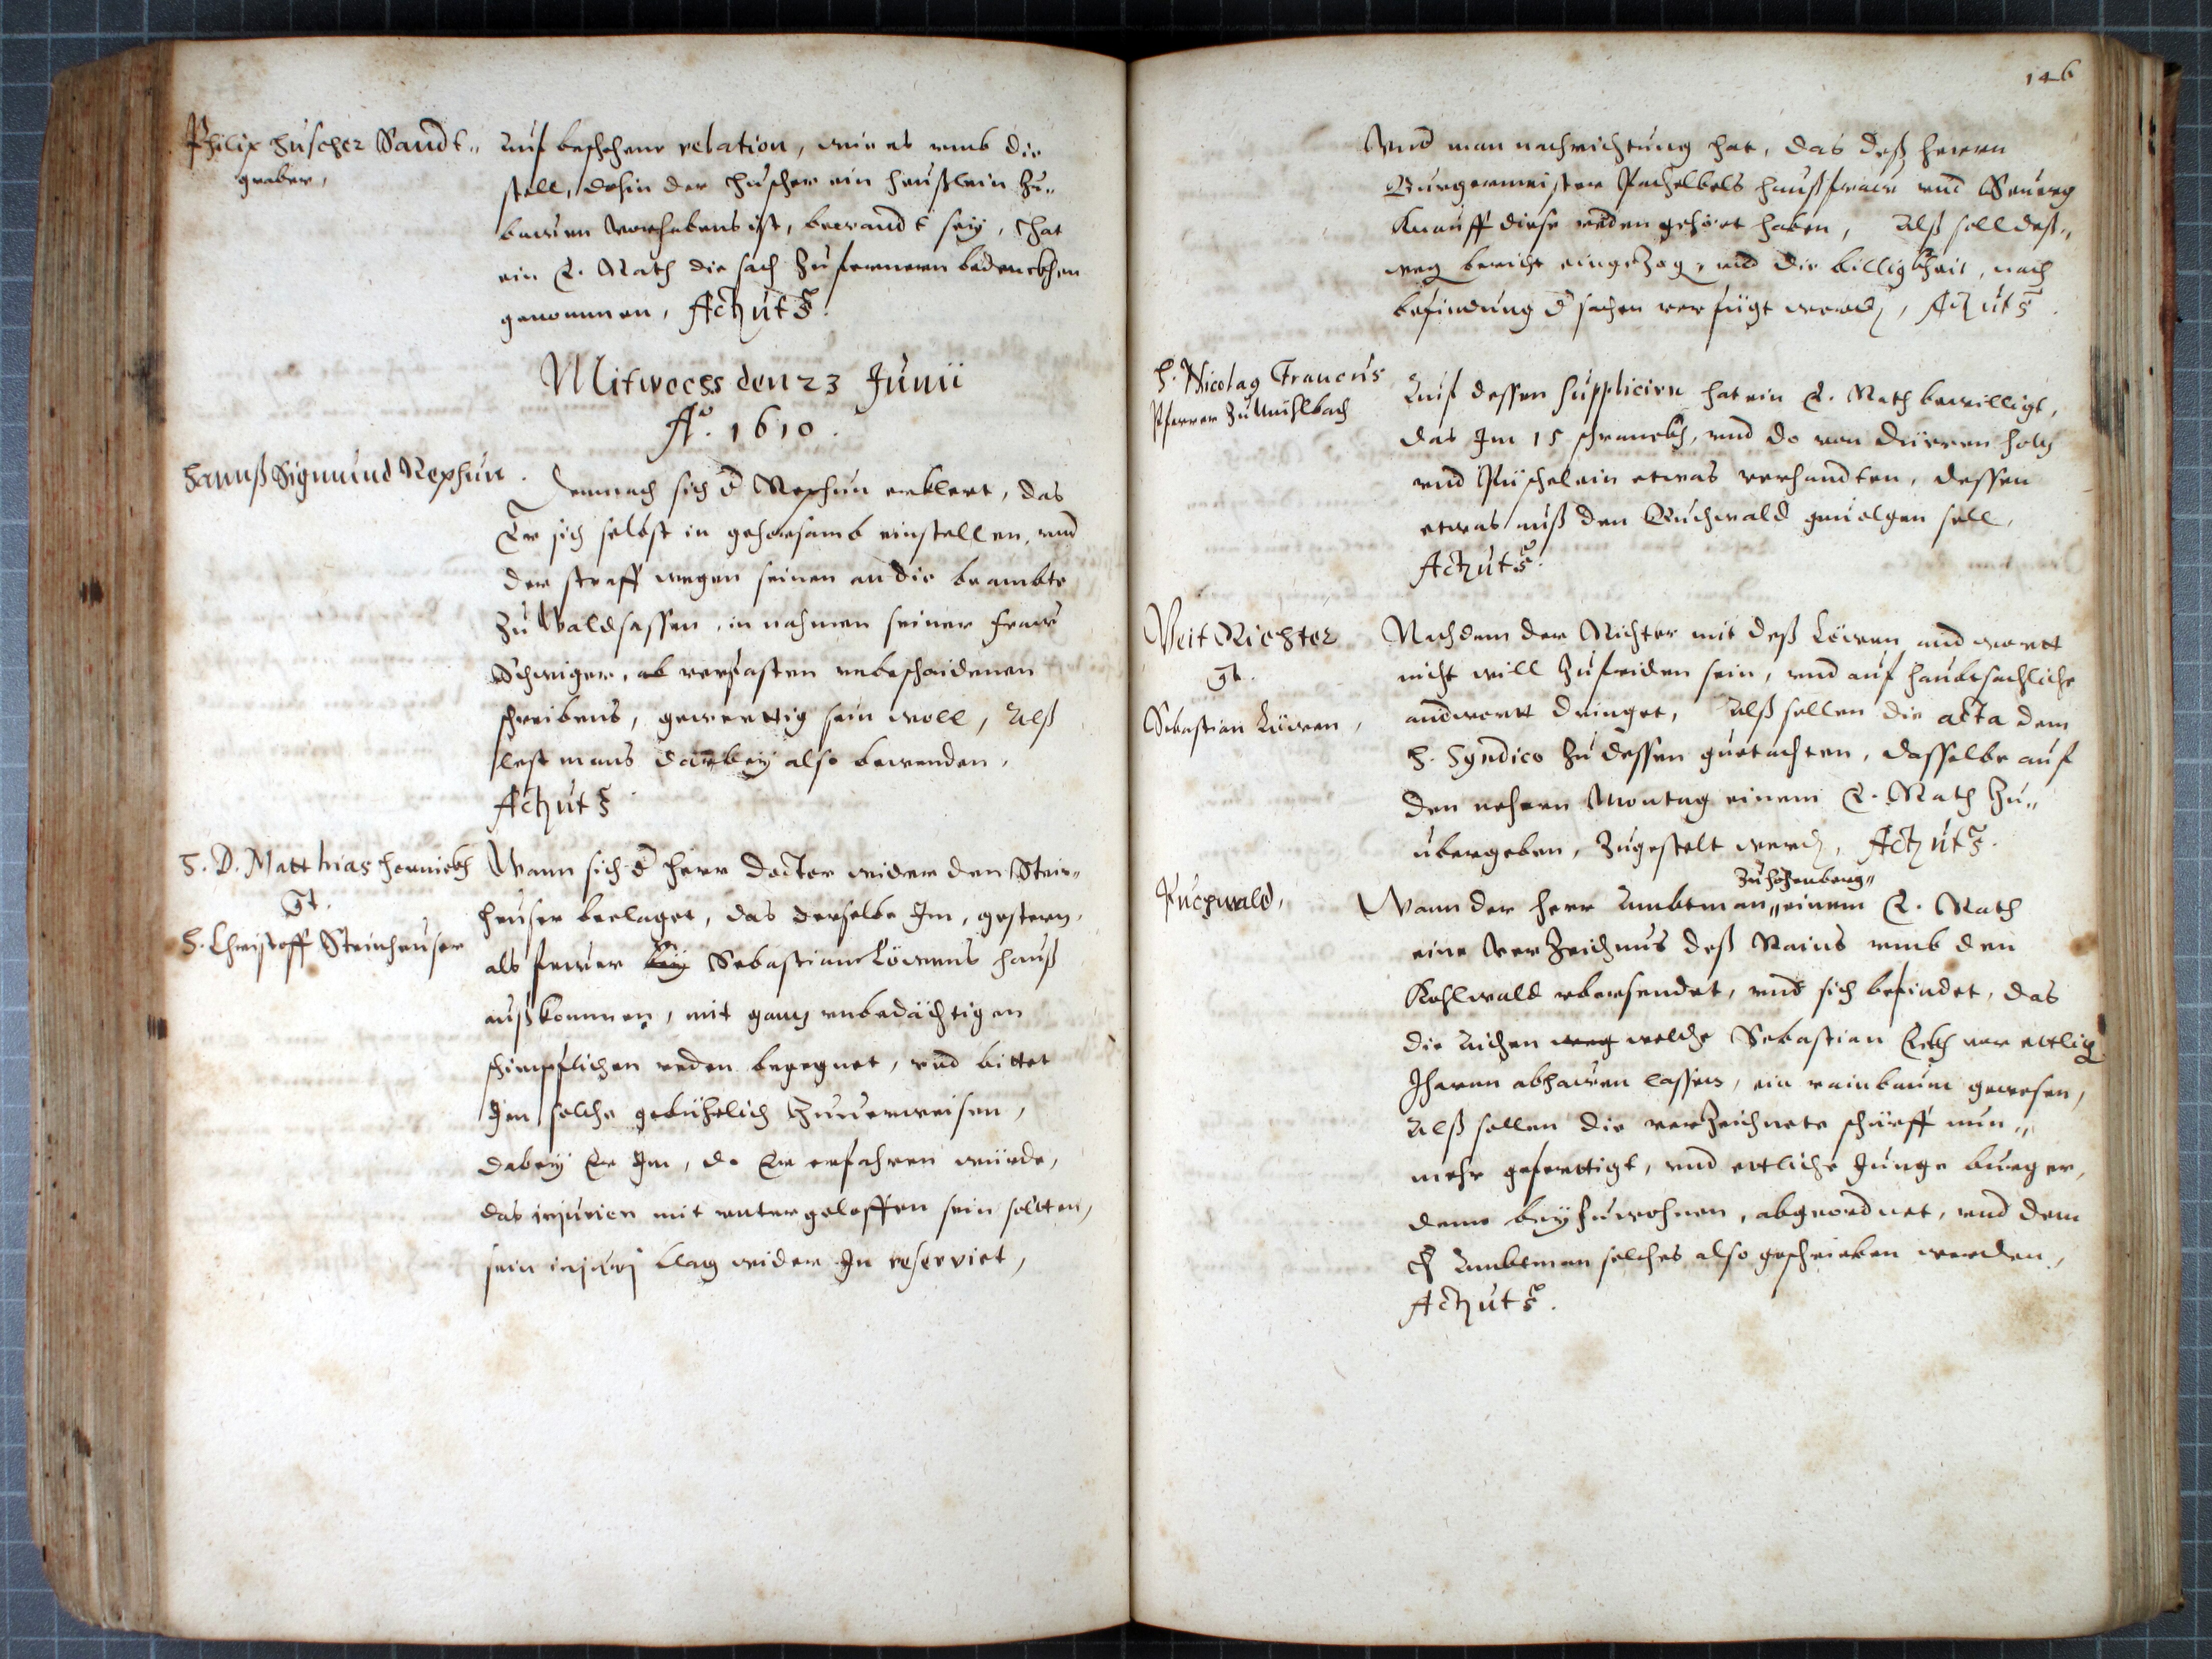 Philix Huscher Sandt„
graber,
Auf beschehene relation, wie es umb die
stell, dohin der Huscher ein heußlein zu„
bawen Vorhabens ist, bewandt sey, hat
ein E. Rath die sach zu fernern bedenckhen
genommen, Act. ut s.
Mitwochs den 23 Junii
Ao. 1610.
Hannß Sigmund Rephun.
Demnach sich d Rephun erklert, das
Er sich selbst in gehorsamb einstellen, und
der straff wegen seinen an die beambte
zu Waldsassen, in nahmen seiner fraw
Schwiger, ab verfasten unbeschaidenen
schreibens, gewerttig sein woll, Alß
lest mans darbey also bewenden,
Act. ut s.
H. D. Matthias Hernickh
Ct.
H. Christoff Steinheuser
Wann sich d herr Doctor wider den Stein„
heuser beclaget, das derselbe Im, gestern,
als fewer bey Sebastian Löwens hauß
außkommen, mit gantz unbedächtigen
schimpflichen reden begegnet, und bittet
Im solche gebührlich zuuerweisen,
dabey Er Im, do Er erfahren würde,
das injurien mit untergeloffen sein sollten,
sein injurj clag wider In reservirt,
146
Und man nachrichtung hat, das deß herrn
Burgermeister Pachelbels haußfraw und Georg
Knauff diese reden gehöret haben, Alß soll deß„
weg bericht eingezog, und die billigkheit, nach
befindung d sachen verfügt werd, Act. ut s.
H. Nicolaq Francus
Pfarrer zu Mühlbach
Auf dessen suppliciren hat ein E. Rath bewilligt,
das Im 15 schranckh, und do von dürren holtz
und Püschelein etwas verhandten, dessen
etwas auß den Buchwald geuolgen soll,
Act. ut s.
Veit Richter
Ct.
Sebastian Löwen,
Nachdem der Richter mit deß Löwen andwortt
nicht will zufriden sein, und auf haubtsachliche
andwortt dringet, Alß sollen die acta dem
H. Syndico zu dessen guetachten, dasselbe auf
den nehern Montag einem E. Rath zu„
übergeben, zugestelt werd, Act. ut s.
Puchwald,
zu Hohenberg„
Wann der herr Ambtman„ einem E. Rath
eine Verzeichnus deß Rains umb den
Kohlwald ubersendet, und sich befindet, das
die Aichen weg welche Sebastian Eckh vor ettlich
Iharen abhawen lassen, ein rainbaum gewesen,
Alß sollen die verzeichnete schrifft nun„
mehr gefertigt, und ettliche Junge burger,
deme beyzuwohnen, abgeordnet, und dem
H Ambtman solches also geschrieben werden,
Act. ut s.